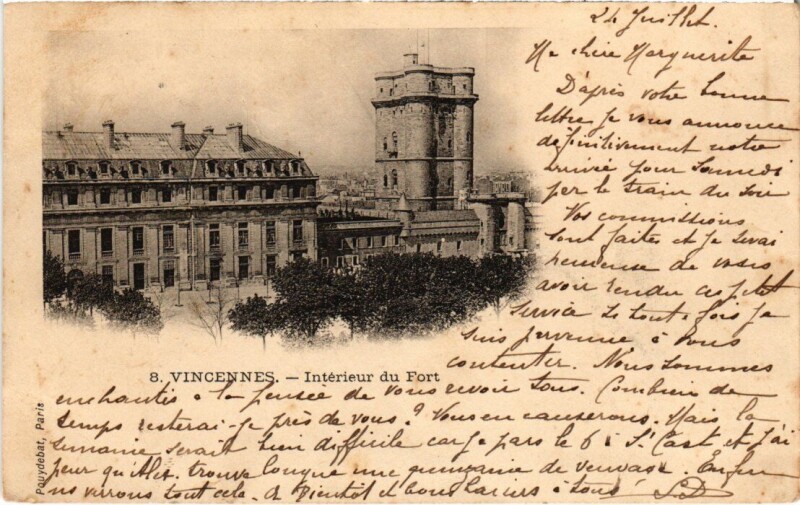 24 Juillet.
Ma chère Marguerite
D'après votre bonne
lettre je vous annonce
définitivement notre
arrivée pour Samedi
par le train du soir
Vos commissions
sont faites et je serai
heureuse de vous
avoir rendu ce petit
service si toutefois je
suis parvenue à vous
contenter. Nous sommes
enchantés à la pensée de vous revoir tous. Combien de
temps resterai-je près de vous? Nous en causerons. Mais la
semaine serait bien difficile car je pars le 6 à St Cast et j'ai
peur qu'Alex. trouve longue une quinzaine de veuvage. Enfin
ns verrons tout cela. A Bientôt et bons baisers à tous
8. VINCENNES. — Intérieur du Fort
Pouydebat, Paris